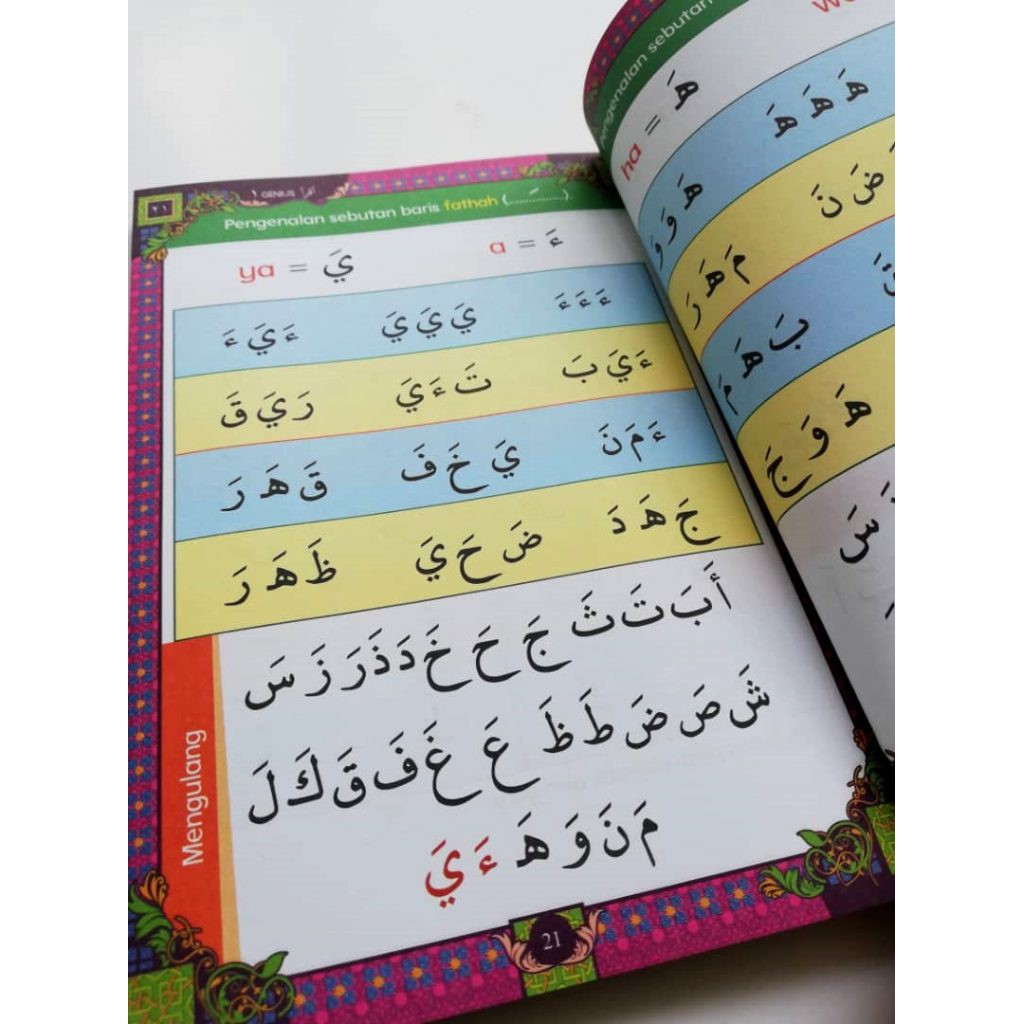 ٢١
اقرأ GENIUS ١
Pengenalan sebutan baris fathah (...............).
ءَ = a يَ = ya
ءَ ءَ ءَ يَ يَ يَ ءَ يَ ءَ
ءَ يَ بَ تَ ءَ يَ رَ يَ قَ
ءَ مَ نَ يَ خَ فَ قَ هَ رَ
جَ هَ دَ ضَ حَ يَ ظَ هَ رَ
Mengulang
أَ بَ تَ ثَ جَ حَ خَ دَ ذَ رَ زَ سَ
شَ صَ ضَ طَ ظَ عَ غَ فَ قَ كَ لَ
مَ نَ وَ هَ ءَ يَ
21
Pengenalan sebutan
هَ = ha
هَ هَ هَ
هَ وَ وَ
ضَ نَ
مَ هَ رَ
بَ هَ مَ
هَ وَ جَ
سَ